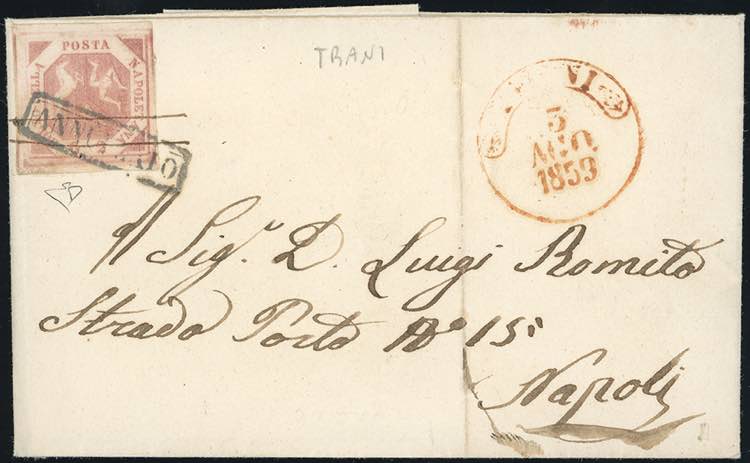 POSTA
NAPOLETANA
ANNULLATO
TRANI
TRANI
3
AGO
1859
Sig.r D. Luigi Romito
Strada Porto No 15
Napoli